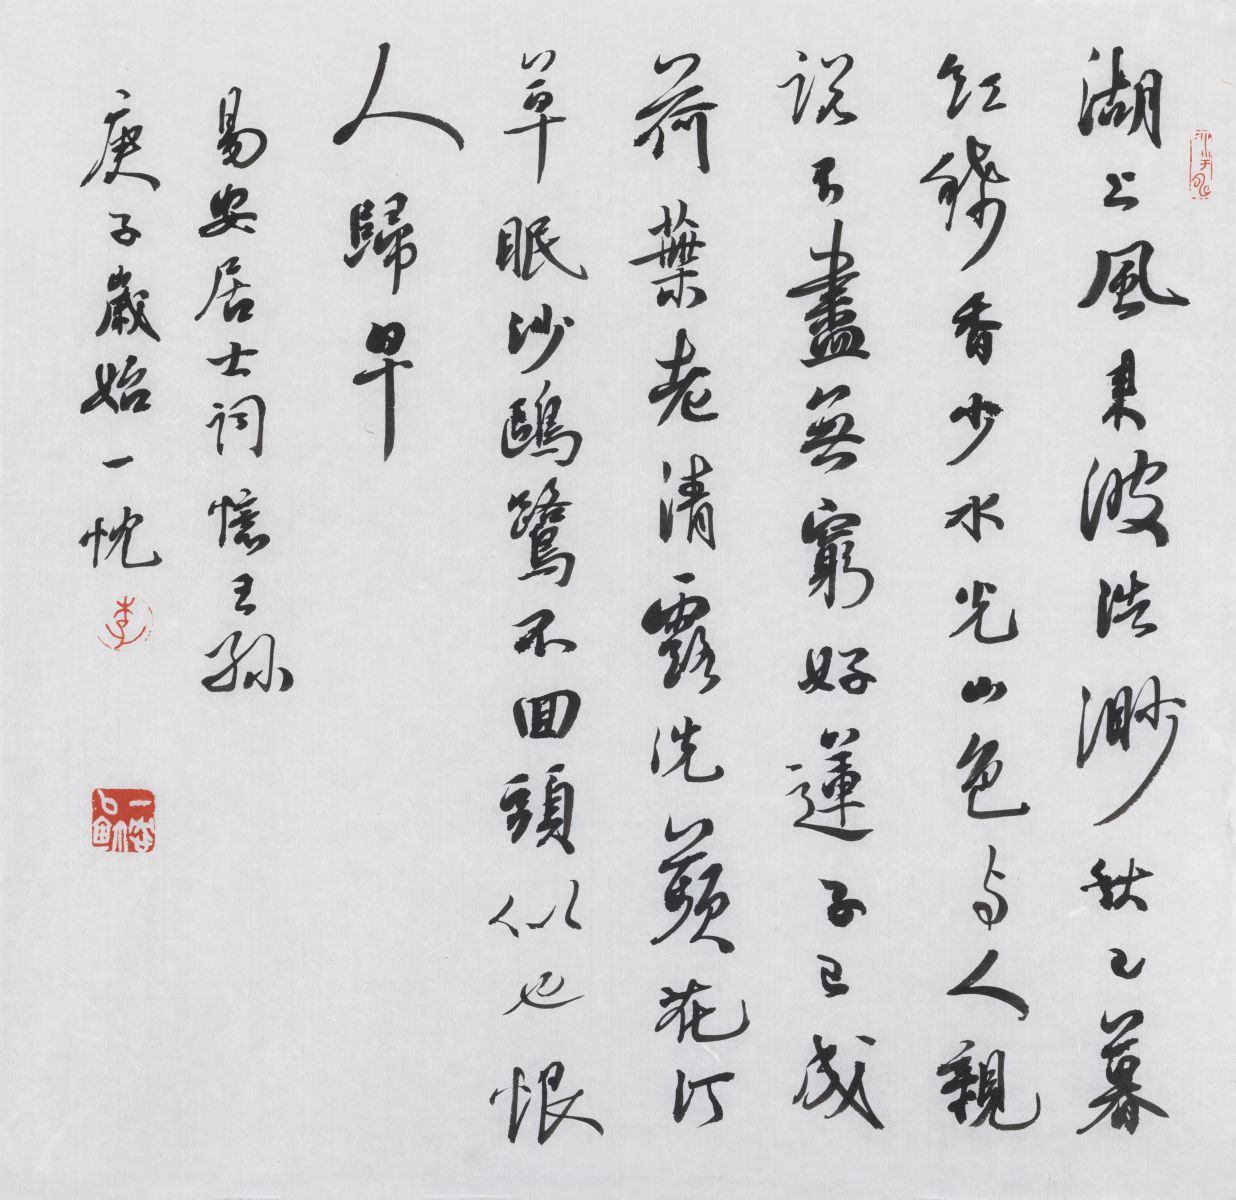 湖上風来波浩渺秋已暮
红稀香少水光山色与人親
说不盡無窮好蓮子已成
荷葉老清露洗蘋花汀
草眠沙鷗鷺不回頭似也恨
人歸早
易安居士词憶王孫
庚子歲始一忱
李